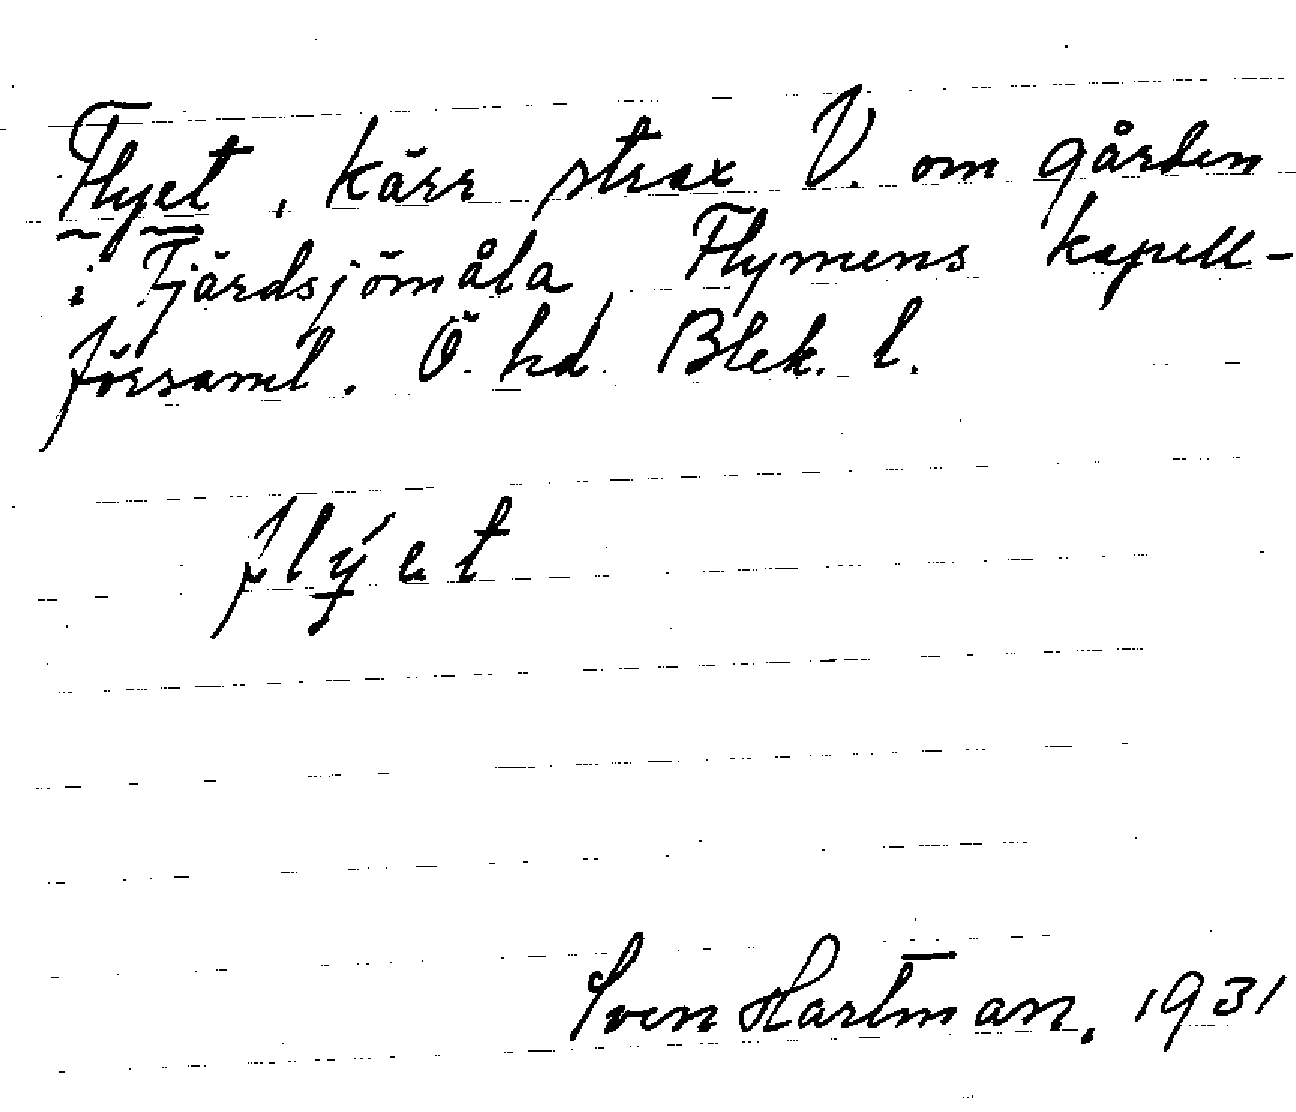 Flyet, kärr strax V. om gården
i Fjärdsjömåla, Flymens kapell-
församl. Ö. hd. Blek. l.
flýet
Sven Hartman. 1931